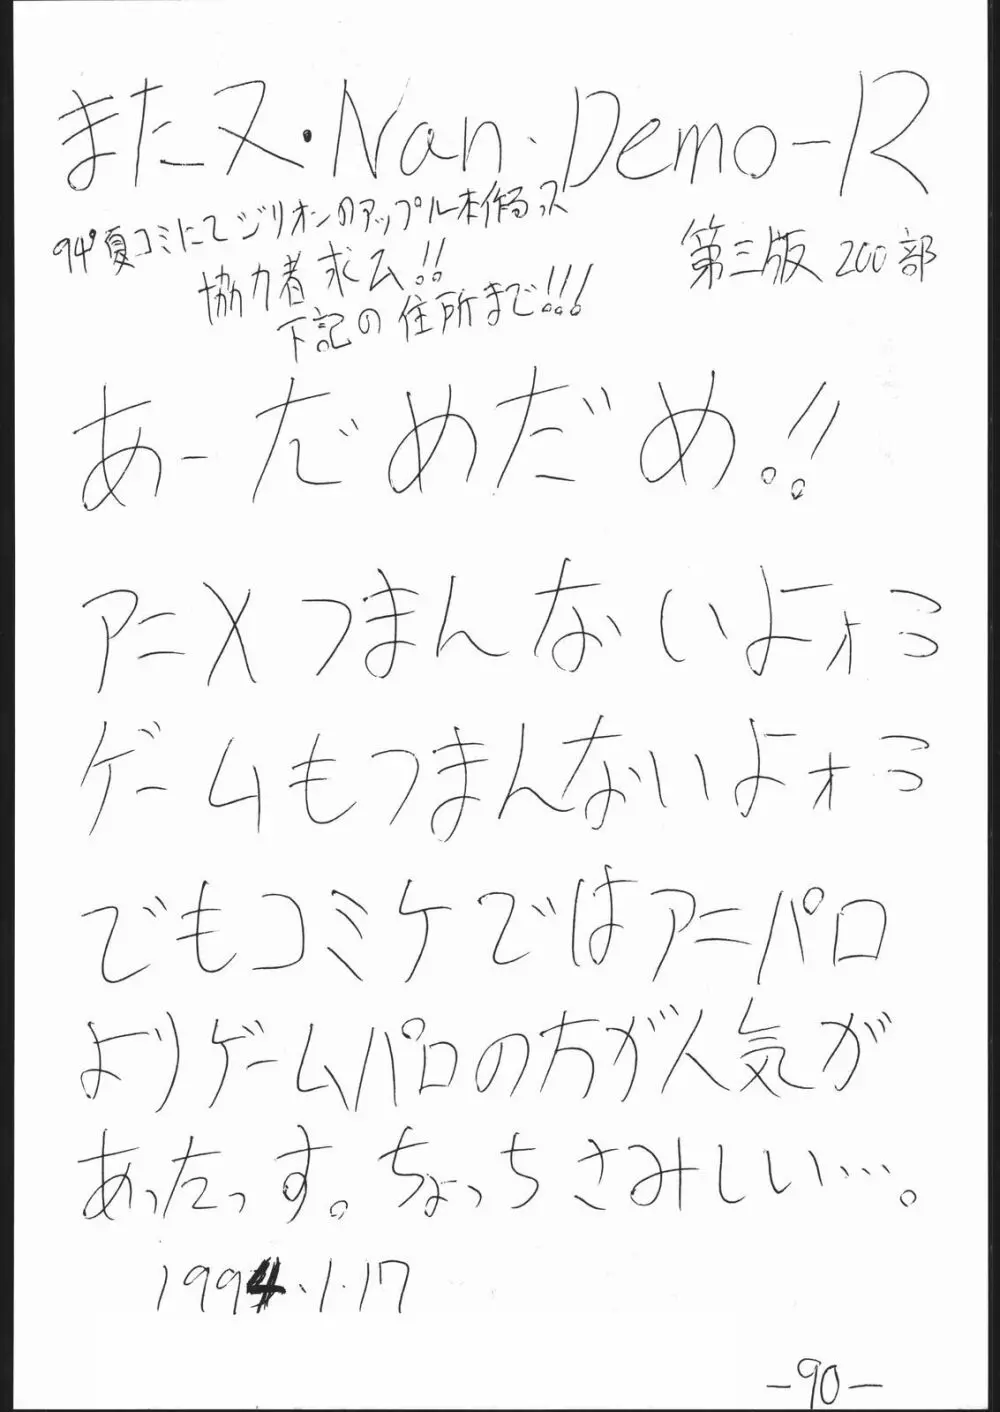 またヌ・Nan・Demo-R
94°夏コミにてジリオンのアップル本作るっス
協力者求ム!!
下記の住所まで!!!
第三版 200部
あーだめだめ!!
アニメつまんないよォミ
ゲームもつまんないよォミ
でもコミケではアニパロ
よりゲームパロの方が人気が
あったっす。ちょっちさみしい…。
1994.1.17
-90-